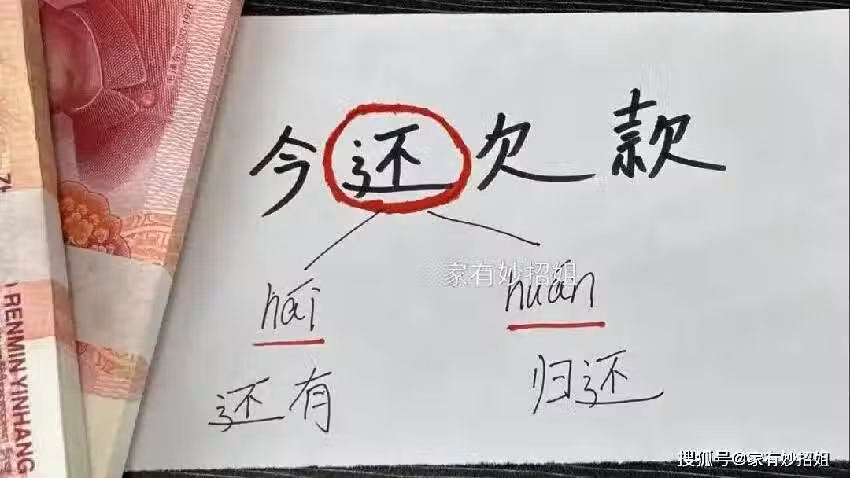 今还欠款
家有妙招姐
hái huán
还有 归还
RENMIN YINHANG
搜狐号@家有妙招姐